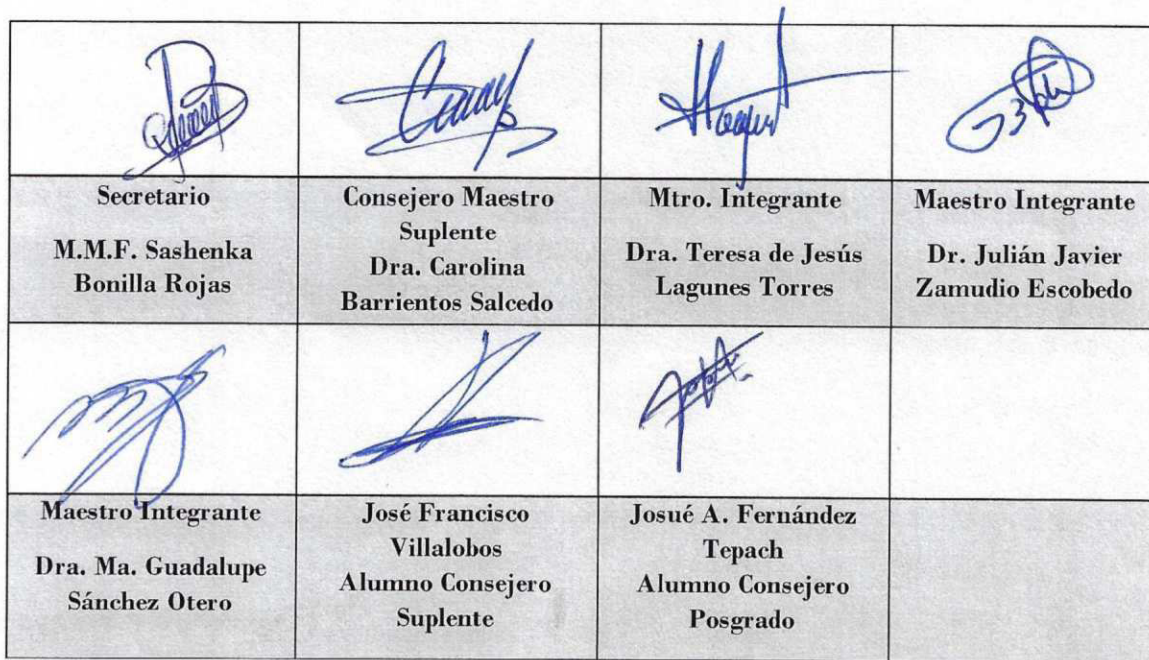 Secretario
M.M.F. Sashenka
Bonilla Rojas
Consejero Maestro
Suplente
Dra. Carolina
Barrientos Salcedo
Mtro. Integrante
Dra. Teresa de Jesús
Lagunes Torres
Maestro Integrante
Dr. Julián Javier
Zamudio Escobedo
Maestro Integrante
Dra. Ma. Guadalupe
Sánchez Otero
José Francisco
Villalobos
Alumno Consejero
Suplente
Josué A. Fernández
Tepach
Alumno Consejero
Posgrado